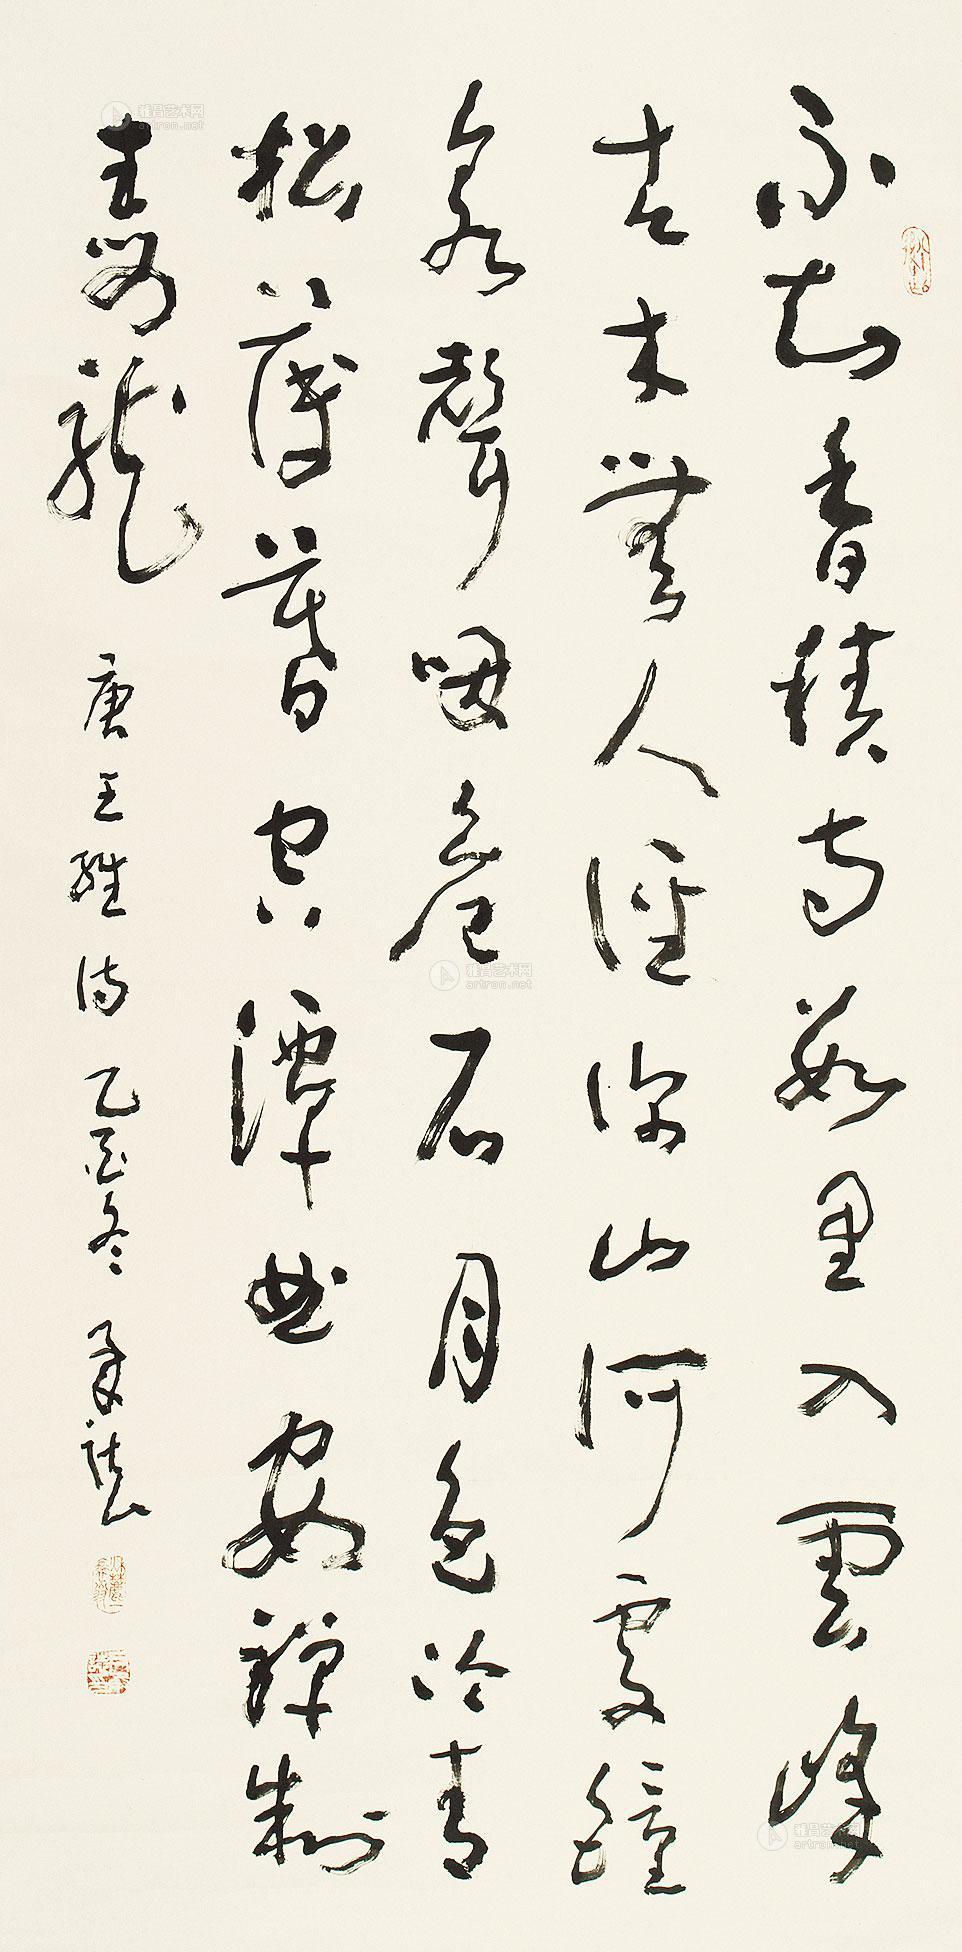 不知香積寺數里入雲峰
古木無人徑深山何處鐘
泉聲咽危石月色冷青
松薄暮空潭曲安禪制
毒龍 唐王維詩 乙酉冬
雅昌艺术网
artron.net
雅昌艺术网
artron.net
雅昌艺术网
artron.net